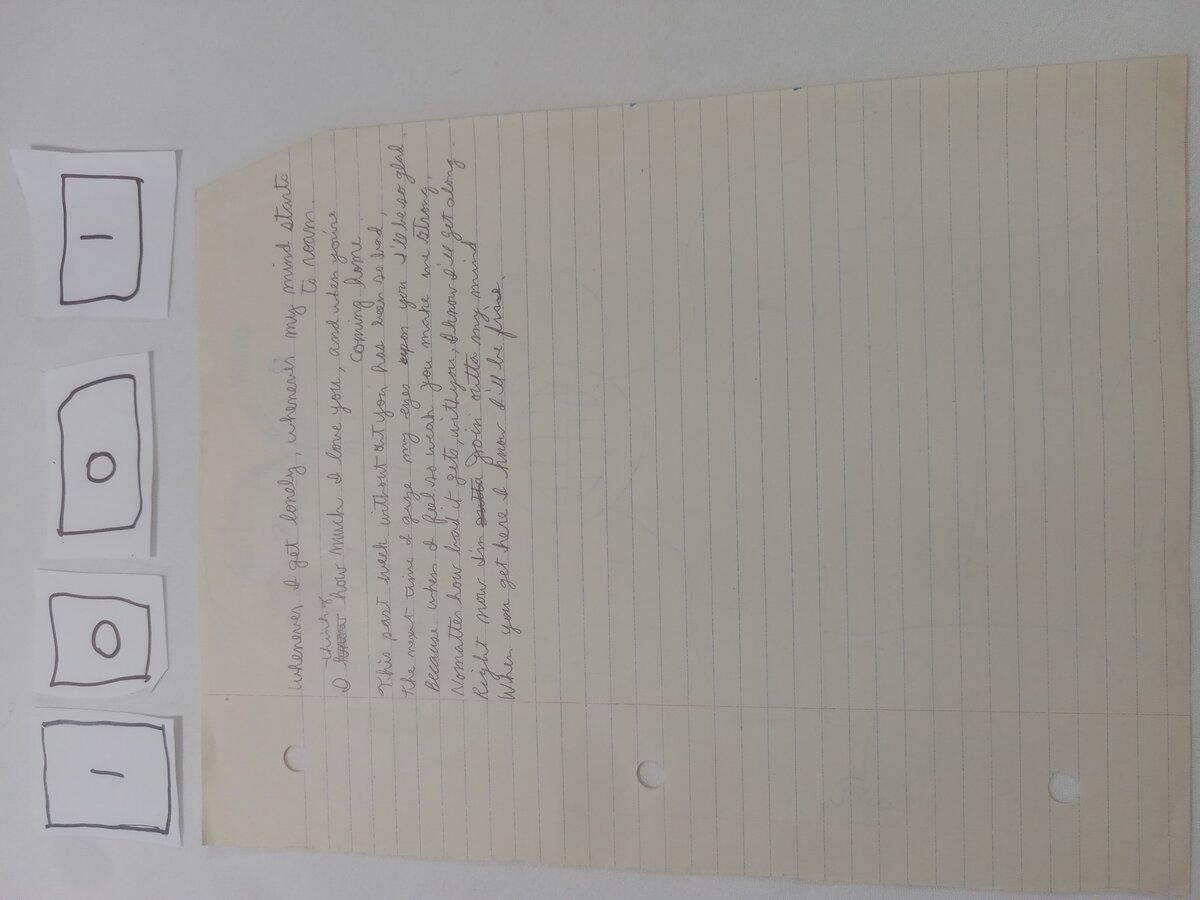 1 0 0 1
Whenever I get lonely, whenever my mind starts
to roam.
think of
I how much I love you, and when you're
coming home.
This past week without out you has been so bad,
the next time I gaze my eyes upon you I'll be so glad.
Because when I feel so weak you make me strong,
Nomatter how bad it gets, with you, I know I'll get along.
Right now I'm outta goin outta my mind
When you get here I know I'll be fine.